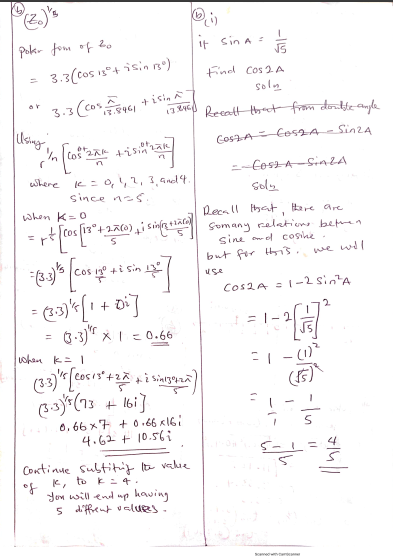 (b) (Z₀)^1/5
polar form of Z₀
= 3.3(cos 13° + i sin 13°)
or 3.3(cos π/13.8461 + i sin π/13.8461)
Using
r^1/n [cos θ+2πk/n + i sin θ+2πk/n]
where K = 0, 1, 2, 3, and 4.
since n = 5.
when K = 0
= r^1/5 [cos [13° + 2π(0)/5 + i sin [13 + 2π(0)/5]
= (3.3)^1/5 [cos 13°/5 + i sin 13°/5]
= (3.3)^1/5 [1 + 0i]
= (3.3)^1/5 × 1 = 0.66
when K = 1
(3.3)^1/5 [cos 13° + 2π/5 + i sin 13° + 2π/5)
(3.3)^1/5 (73 + 16i]
0.66×7 + 0.66×16i
4.62 + 10.56i
Continue the value
of K, to K = 4.
you will end up having
5 values.
(b) (i)
if sin A = 1/√5
Find cos2A
soln
Recall that from double angle
cos2A = cos2A − sin2A
= cos2A − sin2A
soln
Recall that, there are
somany relations between
sine and cosine.
but for this. we will
use
cos2A = 1 − 2 sin²A
= 1 − 2[1/√5]²
= 1 − (1)²/(√5)²
= 1/1 − 1/5
5 − 1/5 = 4/5
Scanned with CamScanner